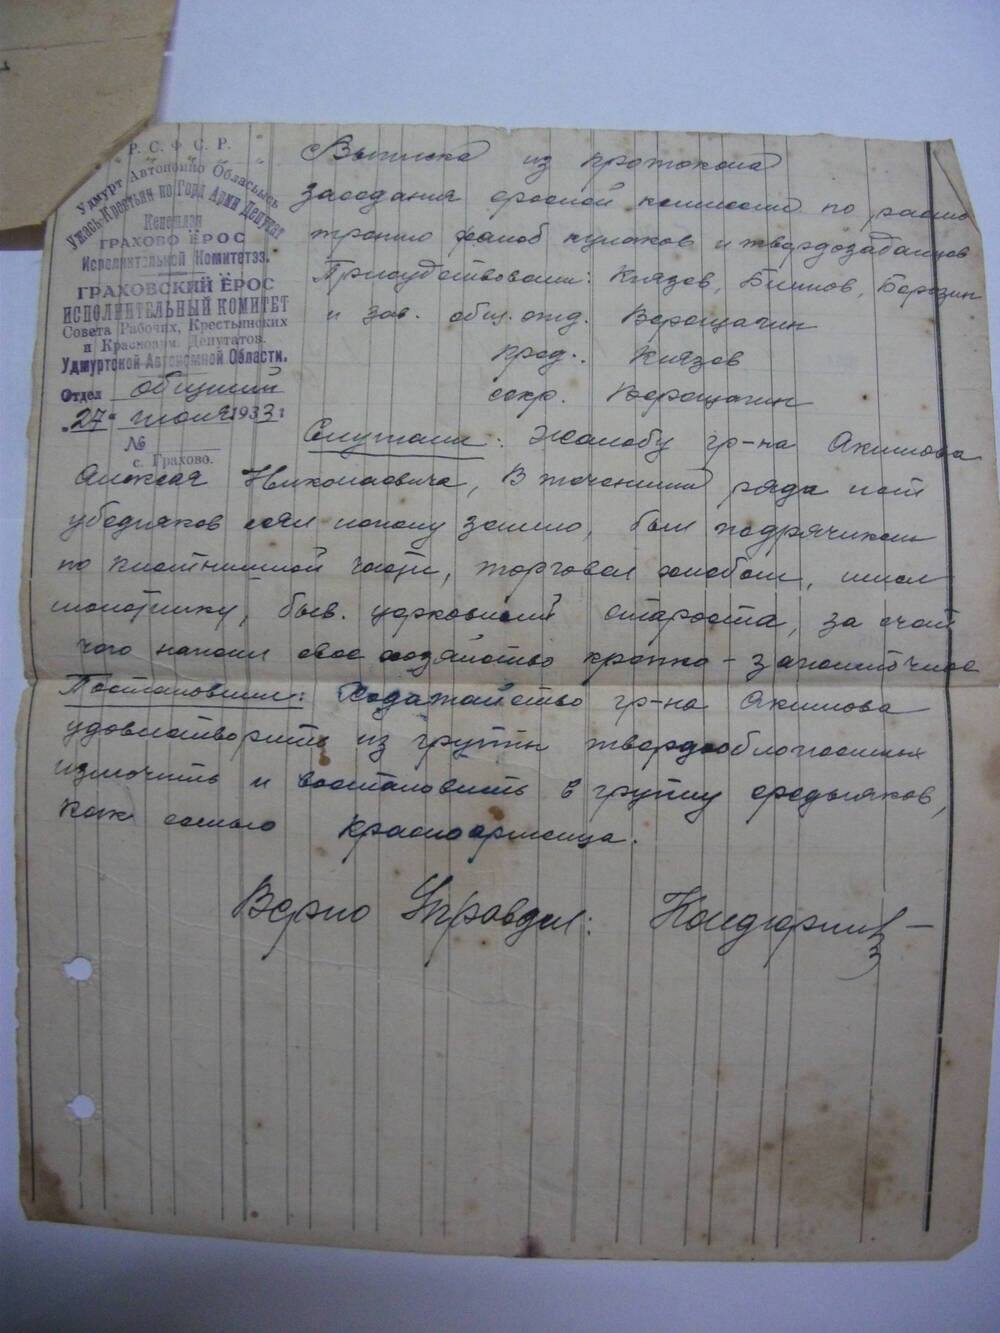 Р. С. Ф. С. Р.
Удмурт Автономно Областьысь
Ужась-Крестьян но Горд Арми Депутат
Кенешлэн
ГРАХОВО ЁРОС
Исполнительной Комитетэз.
ГРАХОВСКИЙ ЁРОС
ИСПОЛНИТЕЛЬНЫЙ КОМИТЕТ
Совета Рабочих, Крестьянских
и Красноарм. Депутатов.
Удмуртской Автономной Области.
Отдел общий
"27" июля 1933 г
№
с. Грахово.
Выписка из протокола
заседания ёросной комиссии по рассмо
трению жалоб кулаков и твердозаданцев
Присудствовали: Князев, Блинов, Березин
и зав. общ. отд. Верещагин
пред. Князев
секр. Верещагин
Слушали: Жалобу гр-на Акимова
Алексея Николаевича, В течении ряда лет
убедняков сеял землю, был подрячиком
по части, торговал хлебом, имел
быв. церковный староста, за счет
чего нажил свое хозяйство крепко-зажиточное
Постановили: Ходатайство гр-на Акимова
удовлетворить из группы твердообложенных
изключить и восстановить в группу средьняков,
как семью красноармейца.
Верно Управдел: